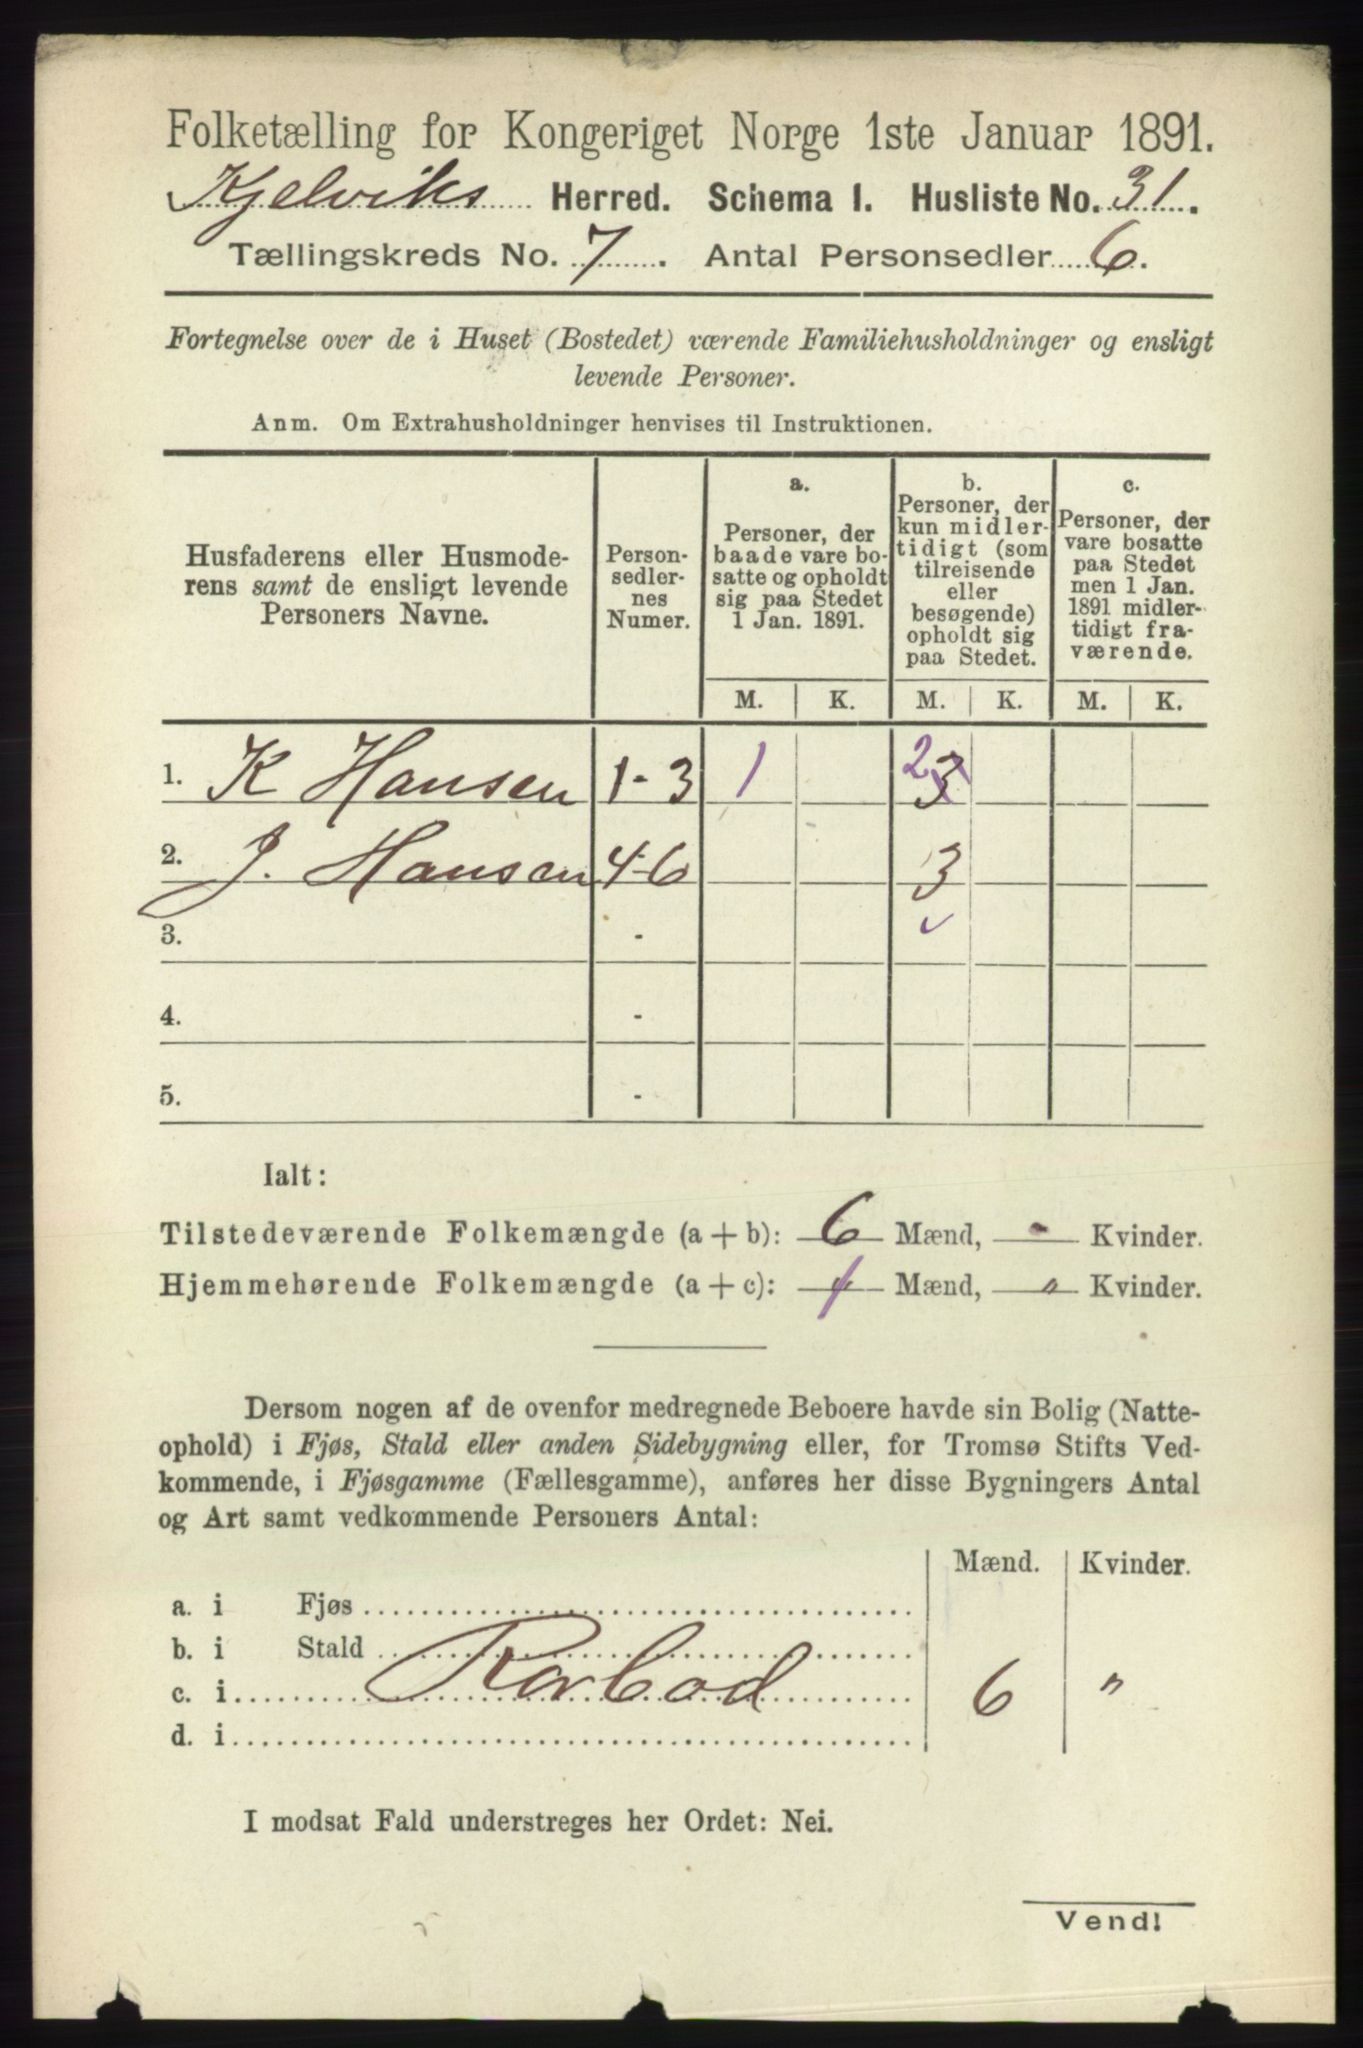 Folketælling for Kongeriget Norge 1ste Januar 1891.
Kjelviks Herred. Schema I. Husliste No. 31.
Tællingskreds No. 7. Antal Personsedler 6.
Fortegnelse over de i Huset (Bostedet) værende Familiehusholdninger og ensligt
levende Personer.
Anm. Om Extrahusholdninger henvises til Instruktionen.
Husfaderens eller Husmode-
rens samt de ensligt levende
Personers Navne.
Person-
sedler-
nes
Numer.
a.
Personer, der
baade vare bo-
satte og opholdt
sig paa Stedet
1 Jan. 1891.
b.
Personer, der
kun midler-
tidigt (som
tilreisende
eller
besøgende)
opholdt sig
paa Stedet.
c.
Personer, der
vare bosatte
paa Stedet
men 1 Jan.
1891 midler-
tidigt fra-
værende.
M. K. M. K. M. K.
1. K Hansen 1-3 1 2 3
2. J. Hansen 4-6 3
3. -
4. -
5. -
Ialt:
Tilstedeværende Folkemængde (a + b): 6 Mænd, - Kvinder.
Hjemmehørende Folkemængde (a + c): 1 Mænd, " Kvinder.
Dersom nogen af de ovenfor medregnede Beboere havde sin Bolig (Natte-
ophold) i Fjøs, Stald eller anden Sidebygning eller, for Tromsø Stifts Ved-
kommende, i Fjøsgamme (Fællesgamme), anføres her disse Bygningers Antal
og Art samt vedkommende Personers Antal:
Mænd. Kvinder.
a. i Fjøs
b. i Stald
c. i Rorbod 6 "
d. i
I modsat Fald understreges her Ordet: Nei.
Vend!